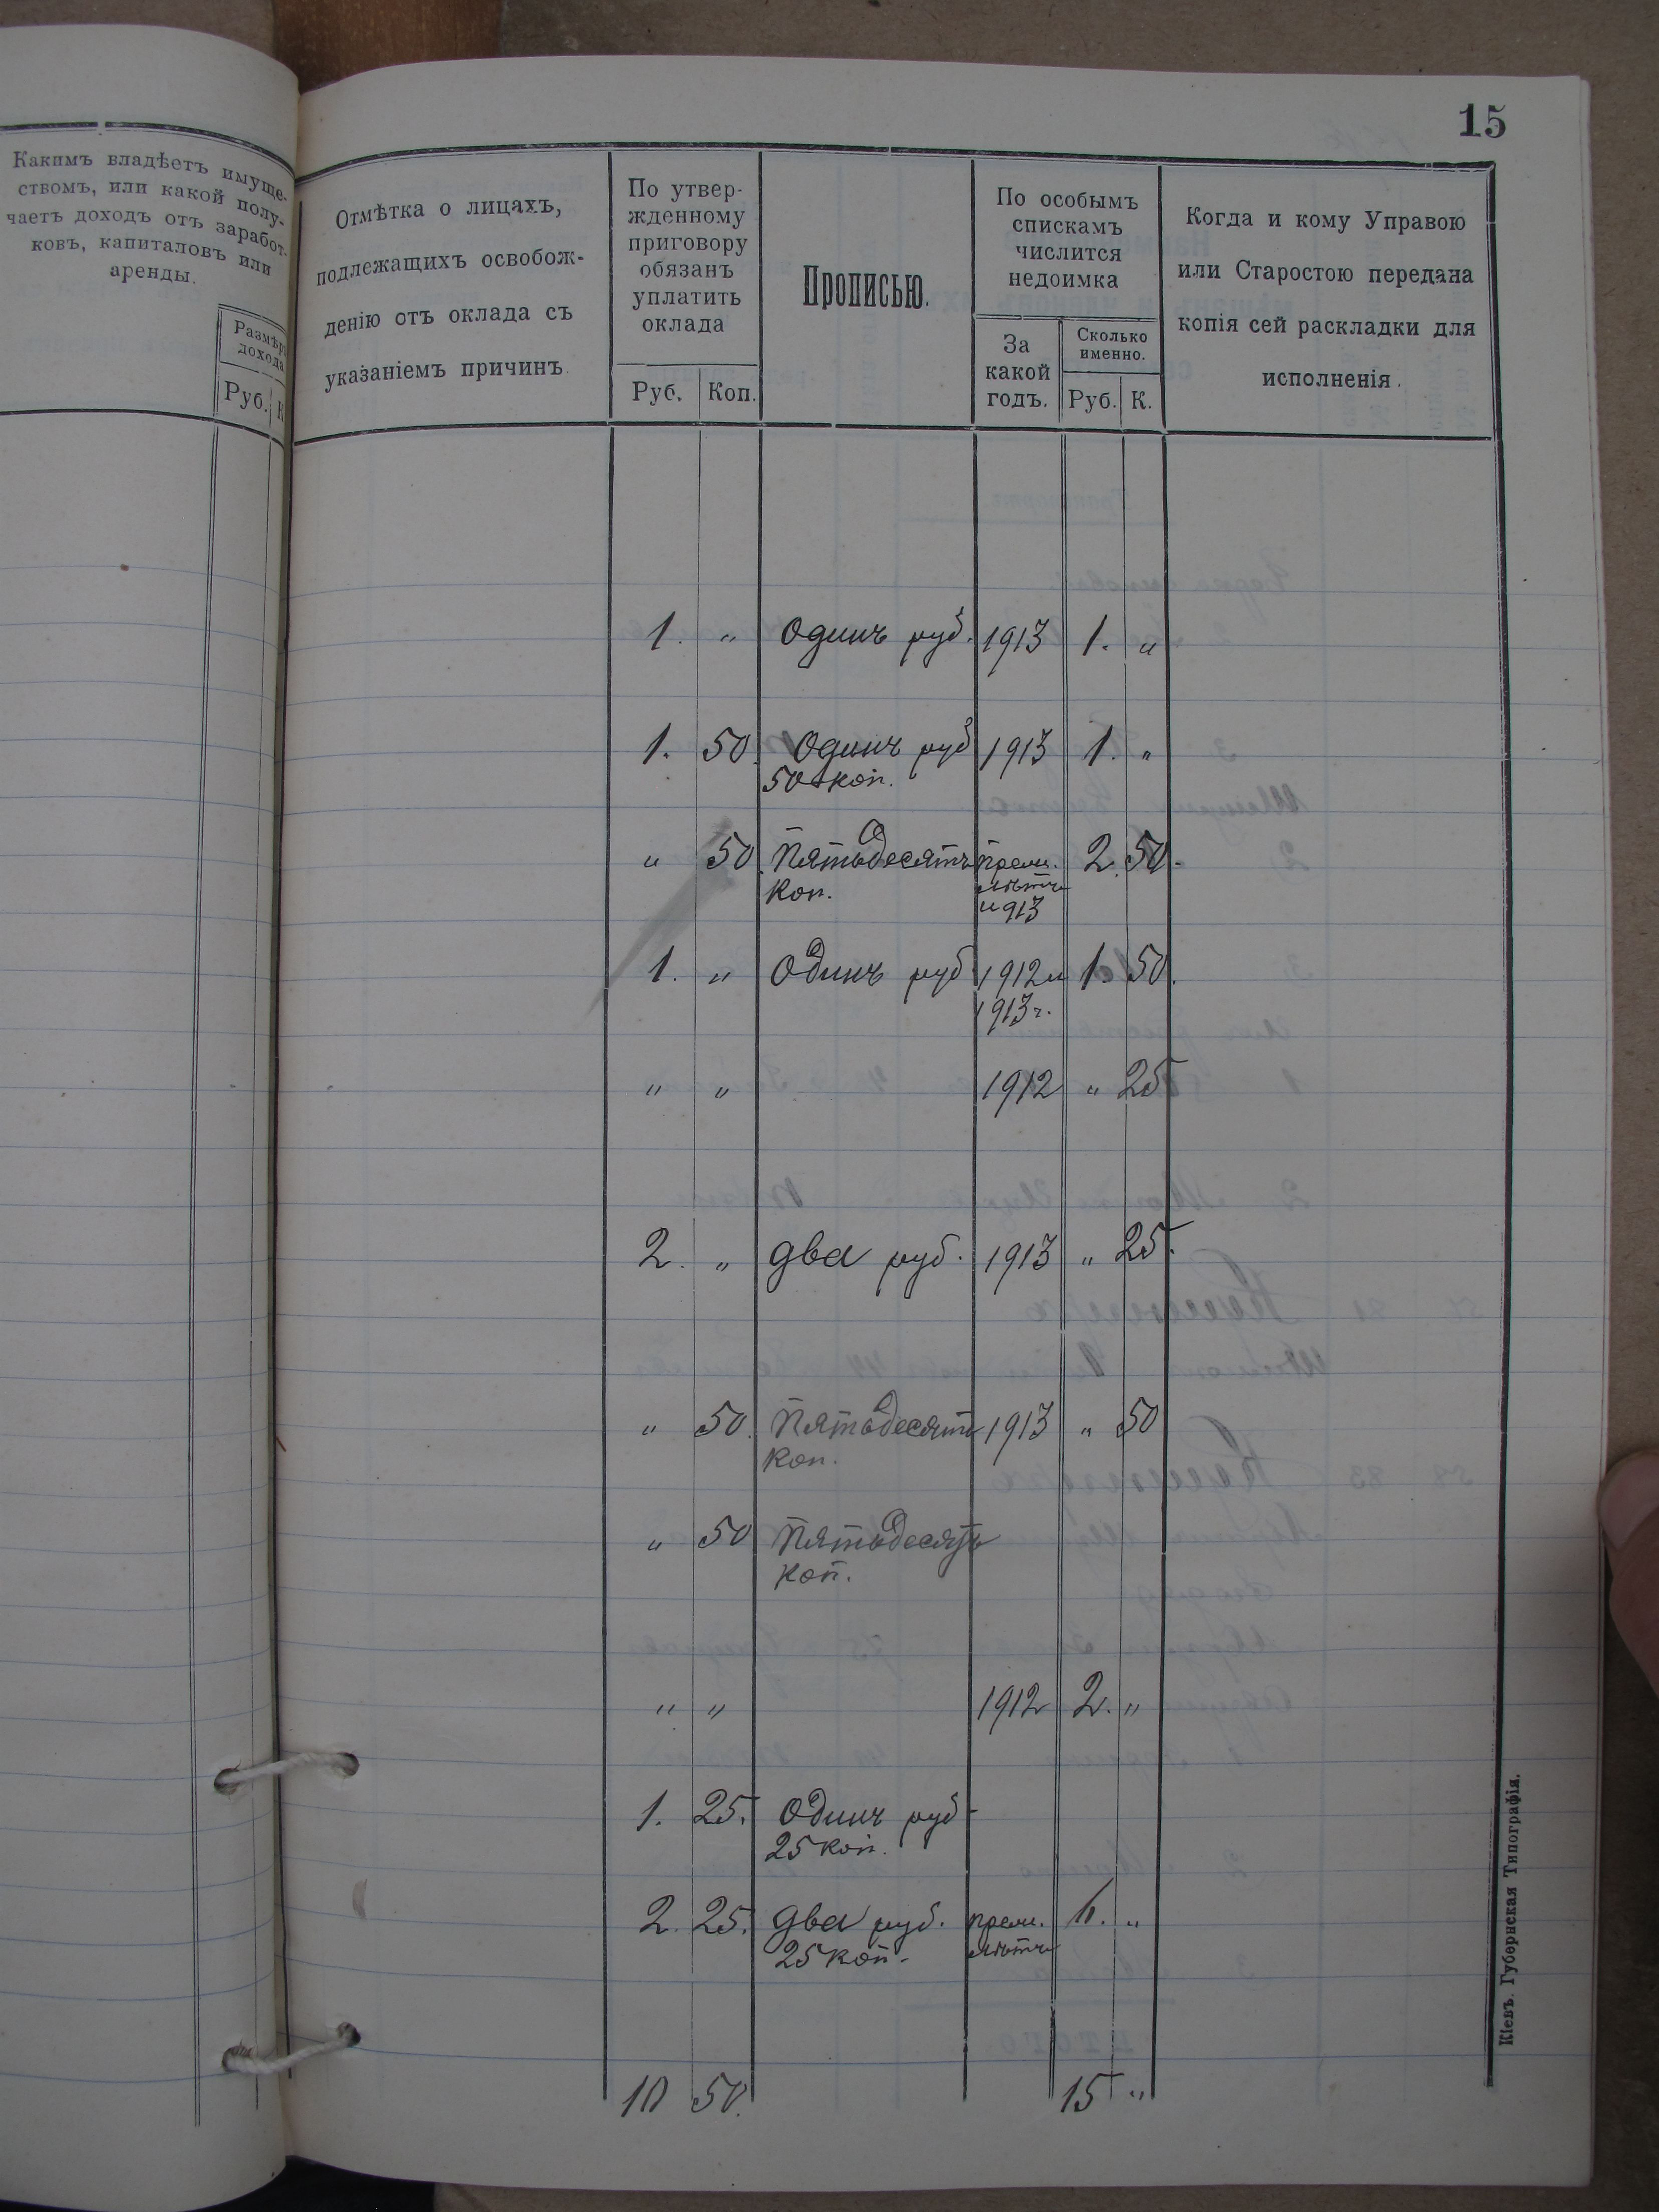 15
Какимъ владѣетъ имуще-
ствомъ, или какой полу-
чаетъ доходъ отъ заработ-
ковъ, капиталовъ или
аренды.
Размѣръ
дохода
Руб.
К
Отмѣтка о лицахъ,
подлежащихъ освобож-
денію отъ оклада съ
указаніемъ причинъ.
По утвер-
жденному
приговору
обязанъ
уплатить
оклада
Руб. Коп.
Прописью.
По особымъ
спискамъ
числится
недоимка
За
какой
годъ.
Сколько
именно.
Руб. К.
Когда и кому Управою
или Старостою передана
копія сей раскладки для
исполненія.
1. " Одинъ руб. 1913 1. "
1. 50 Одинъ руб 1913 1. "
50 коп.
" 50 Пятьдесятъ прежн. 2. 50.
коп. лѣтъ
и 913
1. " Одинъ руб 1912 и 1. 50.
1913 г.
" " 1912 " 25
2. " два руб. 1913 " 25.
" 50. Пятьдесятъ 1913 " 50
коп.
" 50 Пятьдесятъ
коп.
" " 1912 2. "
1. 25. Одинъ руб.
25 коп.
2. 25. два руб. прежн. "
25 коп. лѣтъ
10 50. 15 "
Кіевъ. Губернская Типографія.